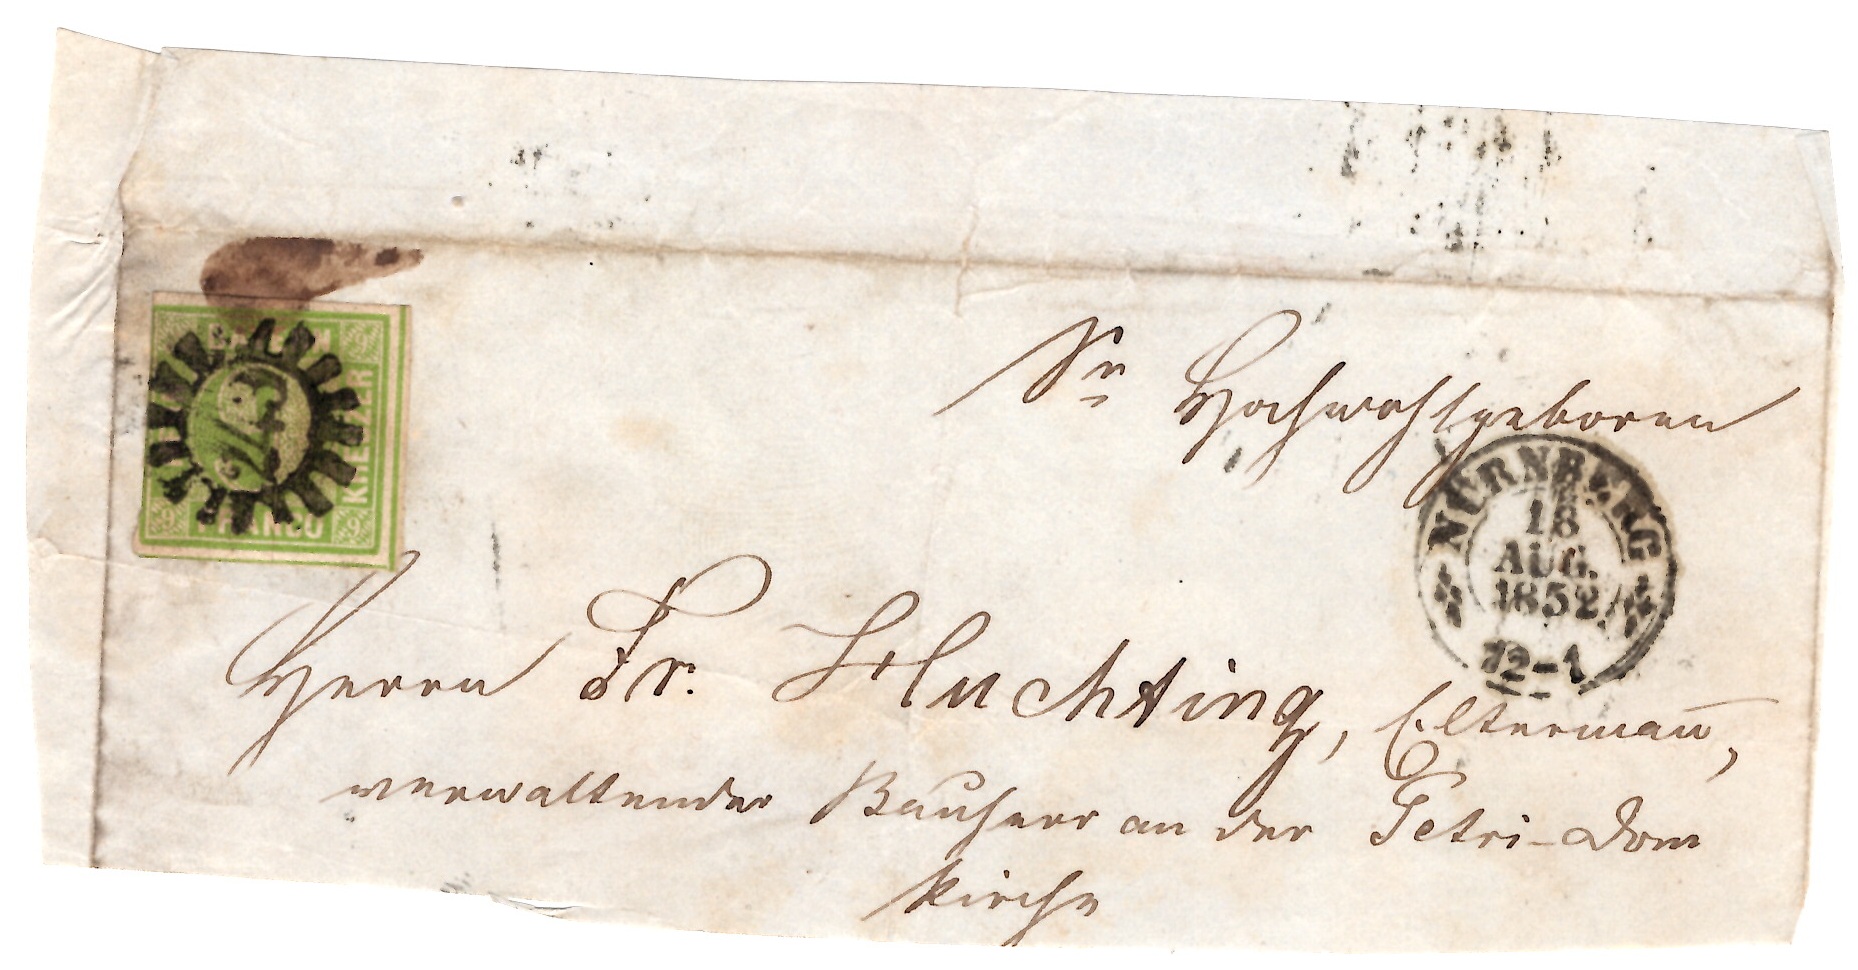 BAYERN
KREUZER
FRANCO
9
9
9
243
Sr Hochwohlgeboren
NÜRNBERG
18
AUG.
1852
12-1
Herrn Fr. Huchting, Eltermañ,
verwaltender Bauherr an der Petri-Dom
kirche